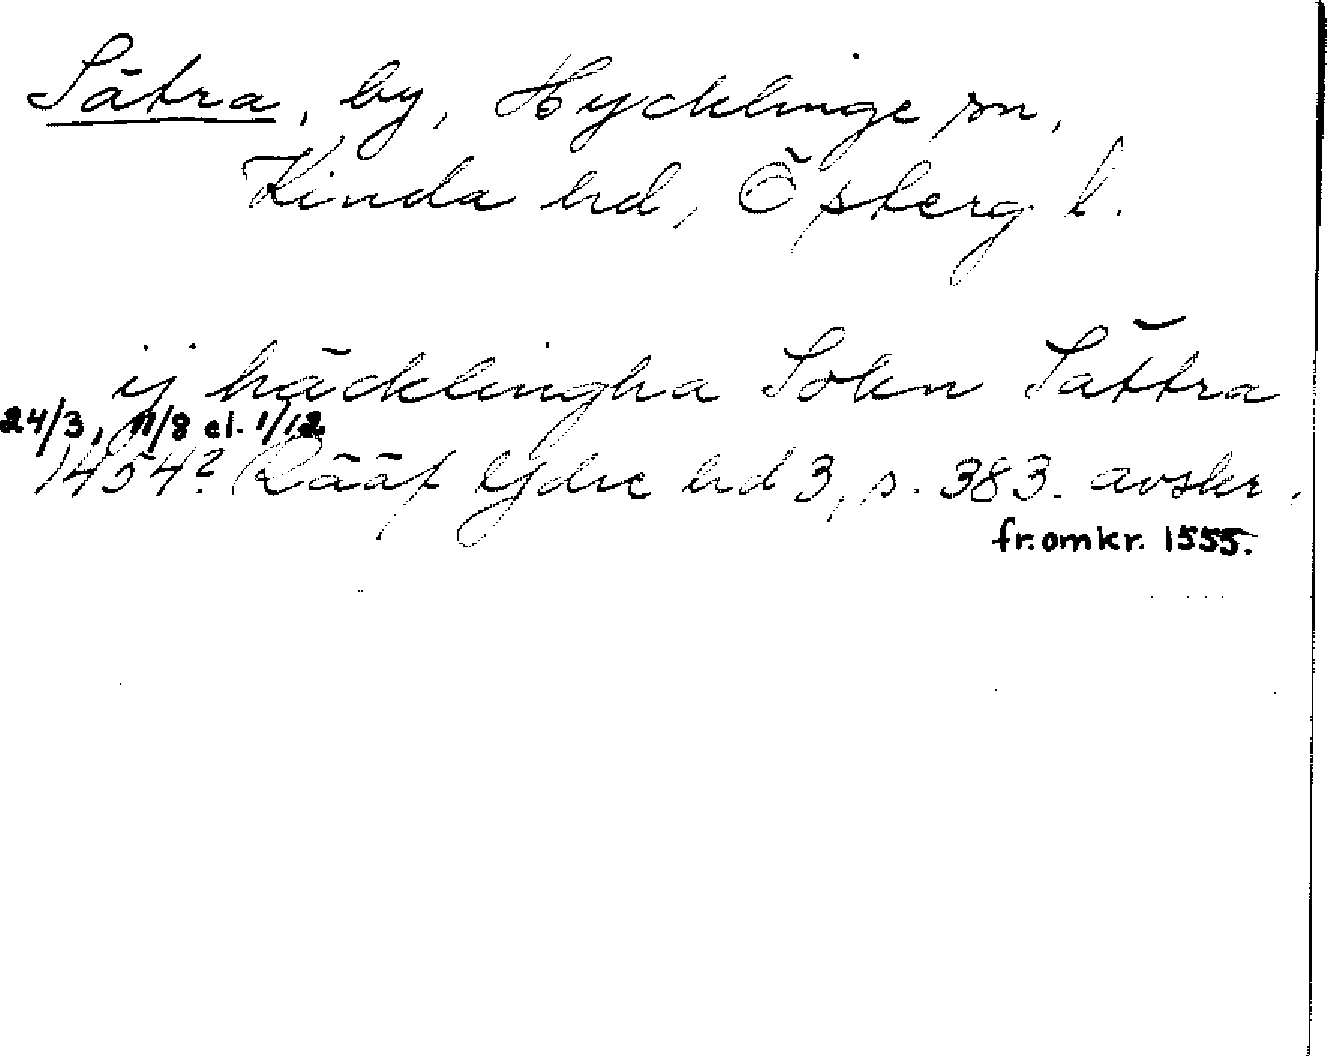 Sätra, by, Hycklinge sn,
Kinda hd, Österg. l.
ij häcklingha Sokn Sättra
24/3, 11/8 el. 1/12
1454? Rääf Ydre hd 3, s. 383. avskr.
fr. omkr. 1555.